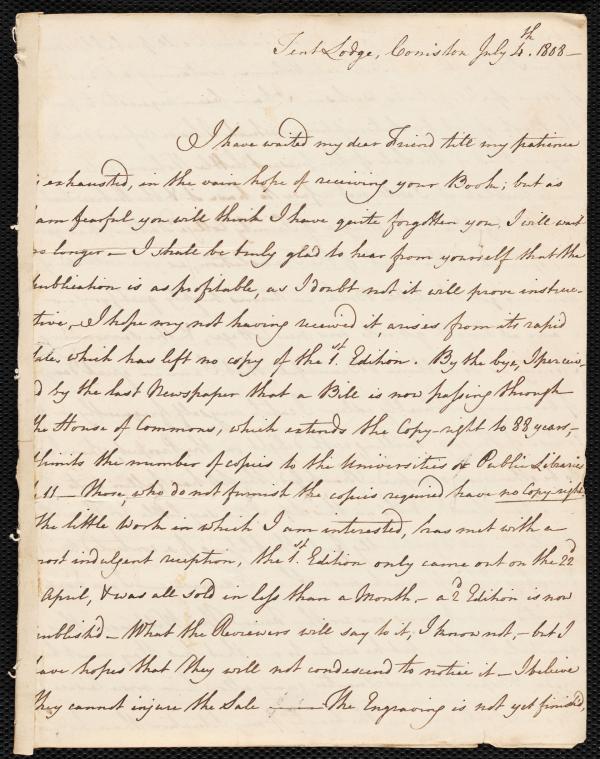 Tent Lodge, Coniston July 4th. 1808 —
I have waited my dear Friend till my patience
is exhausted, in the vain hope of receiving your Book; but as
I am fearful you will think I have quite forgotten you, I will wait
no longer — I shall be truly glad to hear from yourself that the
publication is as profitable, as I doubt not it will prove instruc-
tive, — I hope my not having received it, arises from its rapid
sale, which has left no copy of the 1st. Edition. By the bye, I perceiv-
d by the last Newspaper that a Bill is now passing through
the House of Commons, which extends the Copy-right to 28 years, —
& limits the number of copies to the Universities & Public Libraries
to 11 — Those, who do not furnish the copies required have no Copy-right.
The little Work in which I am interested, has met with a
most indulgent reception, the 1st. Edition only came out on the 22d
April, & was all sold in less than a Month — a 2d Edition is now
published — What the Reviewers will say to it, I know not, — but I
have hopes that they will not condescend to notice it — I believe
they cannot injure the Sale ——— The Engraving is not yet finish'd,